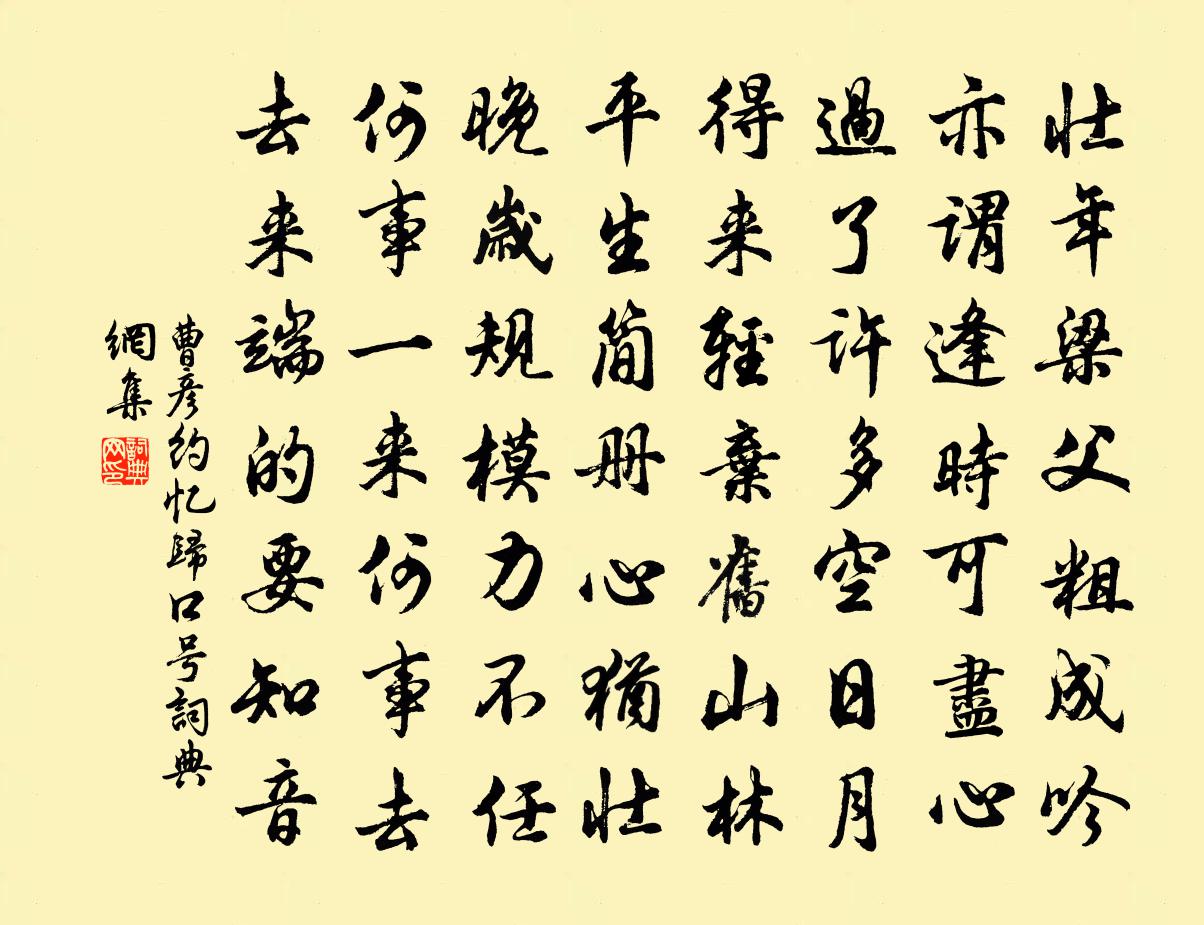 壮年梁父粗成吟
亦謂逢時可盡心
過了许多空日月
得来輕棄舊山林
平生简册心猶壮
晚歲規模力不任
何事一来何事去
去来端的要知音
曹彦约忆歸口号詞典
網集
詞典
网印